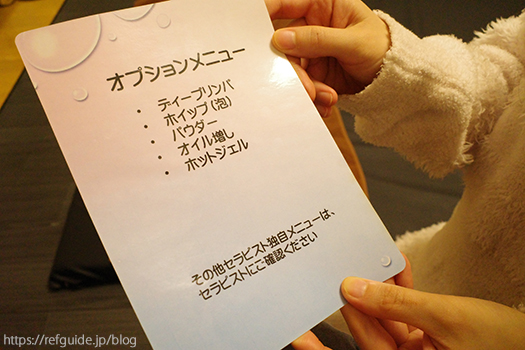 オプションメニュー
・ ディープリンパ
・ ホイップ(泡)
・ パウダー
・ オイル増し
・ ホットジェル
その他セラピスト独自メニューは、
セラピストにご確認ください
https://refguide.jp/blog